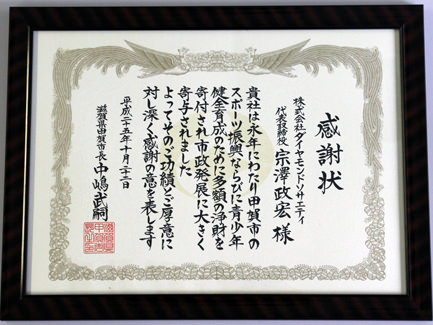 感謝状
株式会社ダイヤモンドソサエティ
代表取締役 宗澤政宏 様
貴社は永年にわたり甲賀市の
スポーツ振興ならびに青少年
健全育成のために多額の浄財を
寄付され市政発展に大きく
寄与されました
よってそのご功績とご厚意に
対し深く感謝の意を表します
平成二十五年十月二十二日
滋賀県甲賀市長 中嶋武嗣